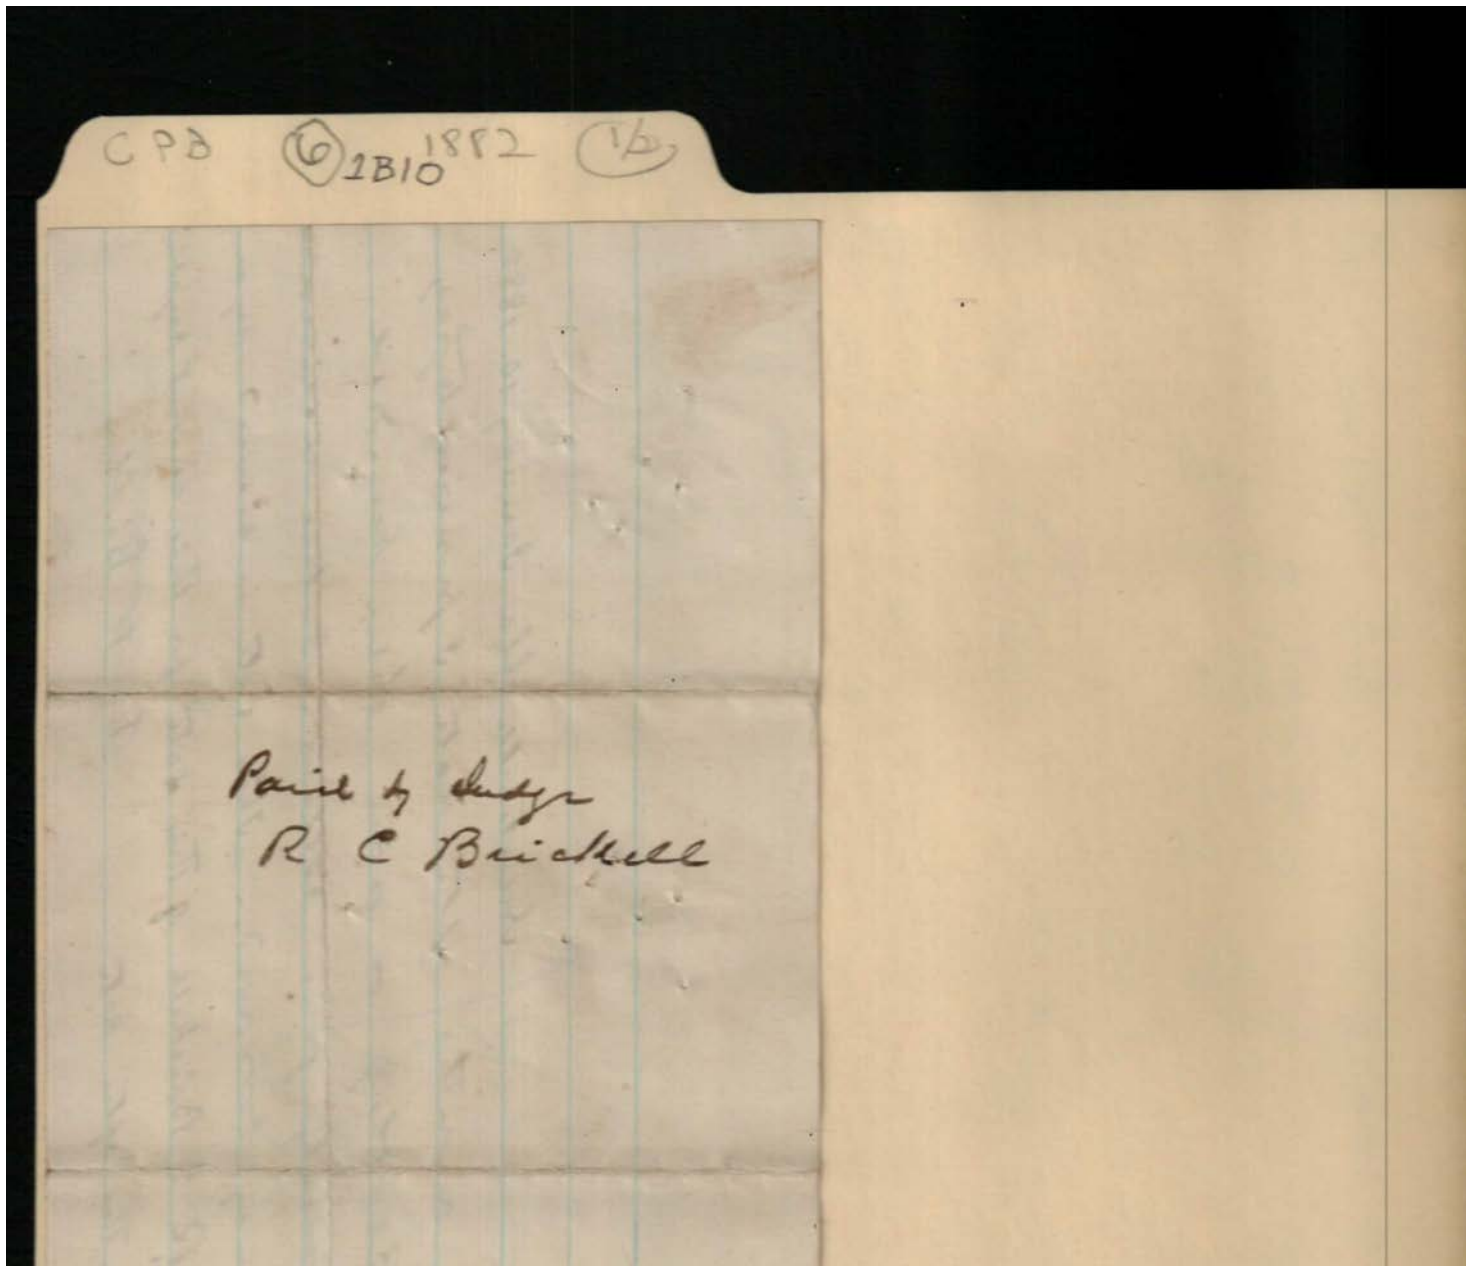 CPB 6 1B10 1882 1/2
Paid by Judge
R C Brickell